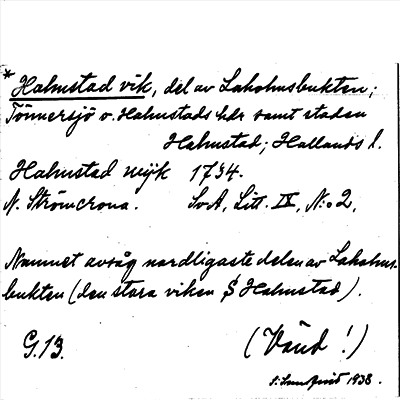 * Halmstad vik, del av Laholmsbukten;
Tönnersjö o. Halmstads hdr samt staden
Halmstad; Hallands l.
Halmstad wijk 1734.
N. Strömcrona. SvA, Litt. IX, N:o 2,
Namnet avsåg nordligaste delen av Laholms-
bukten (den stora viken S Halmstad).
G.13. (Vänd!)
1938.